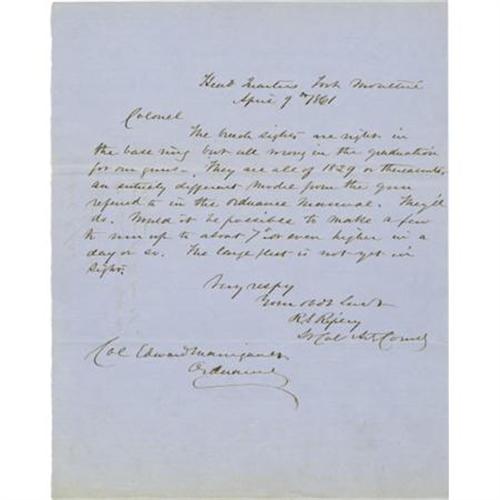 Head Quarters Fort Moultrie
April 9th 1861
Colonel
The breech sights are right in
the base ring but all wrong in the graduation
for our guns. They are all of 1829 or thereabouts
an entirely different Model from the gun
refered to in the Ordnance Manual. They'll
do. Would it be possible to make a few
to run up to about 7° or even higher in a
day or so. The large fleet is not yet in
sight.
Very respy
Your obt Servt
R S Ripley
Lt Col Art Comdg
Col Edward Manigault
Ordnance